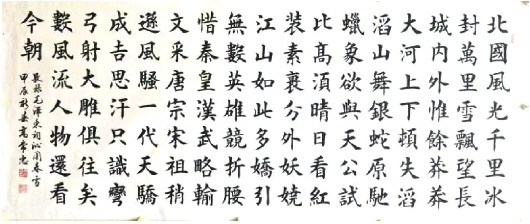 北國風光千里冰
封萬里雪飄望長
城內外惟餘莽莽
大河上下頓失滔
滔山舞銀蛇原馳
蠟象欲與天公試
比高須晴日看紅
裝素裹分外妖嬈
江山如此多嬌引
無數英雄競折腰
惜秦皇漢武略輸
文采唐宗宋祖稍
遜風騷一代天驕
成吉思汗只識彎
弓射大雕俱往矣
數風流人物還看
今朝
毛澤東詞沁園春雪
甲辰秋